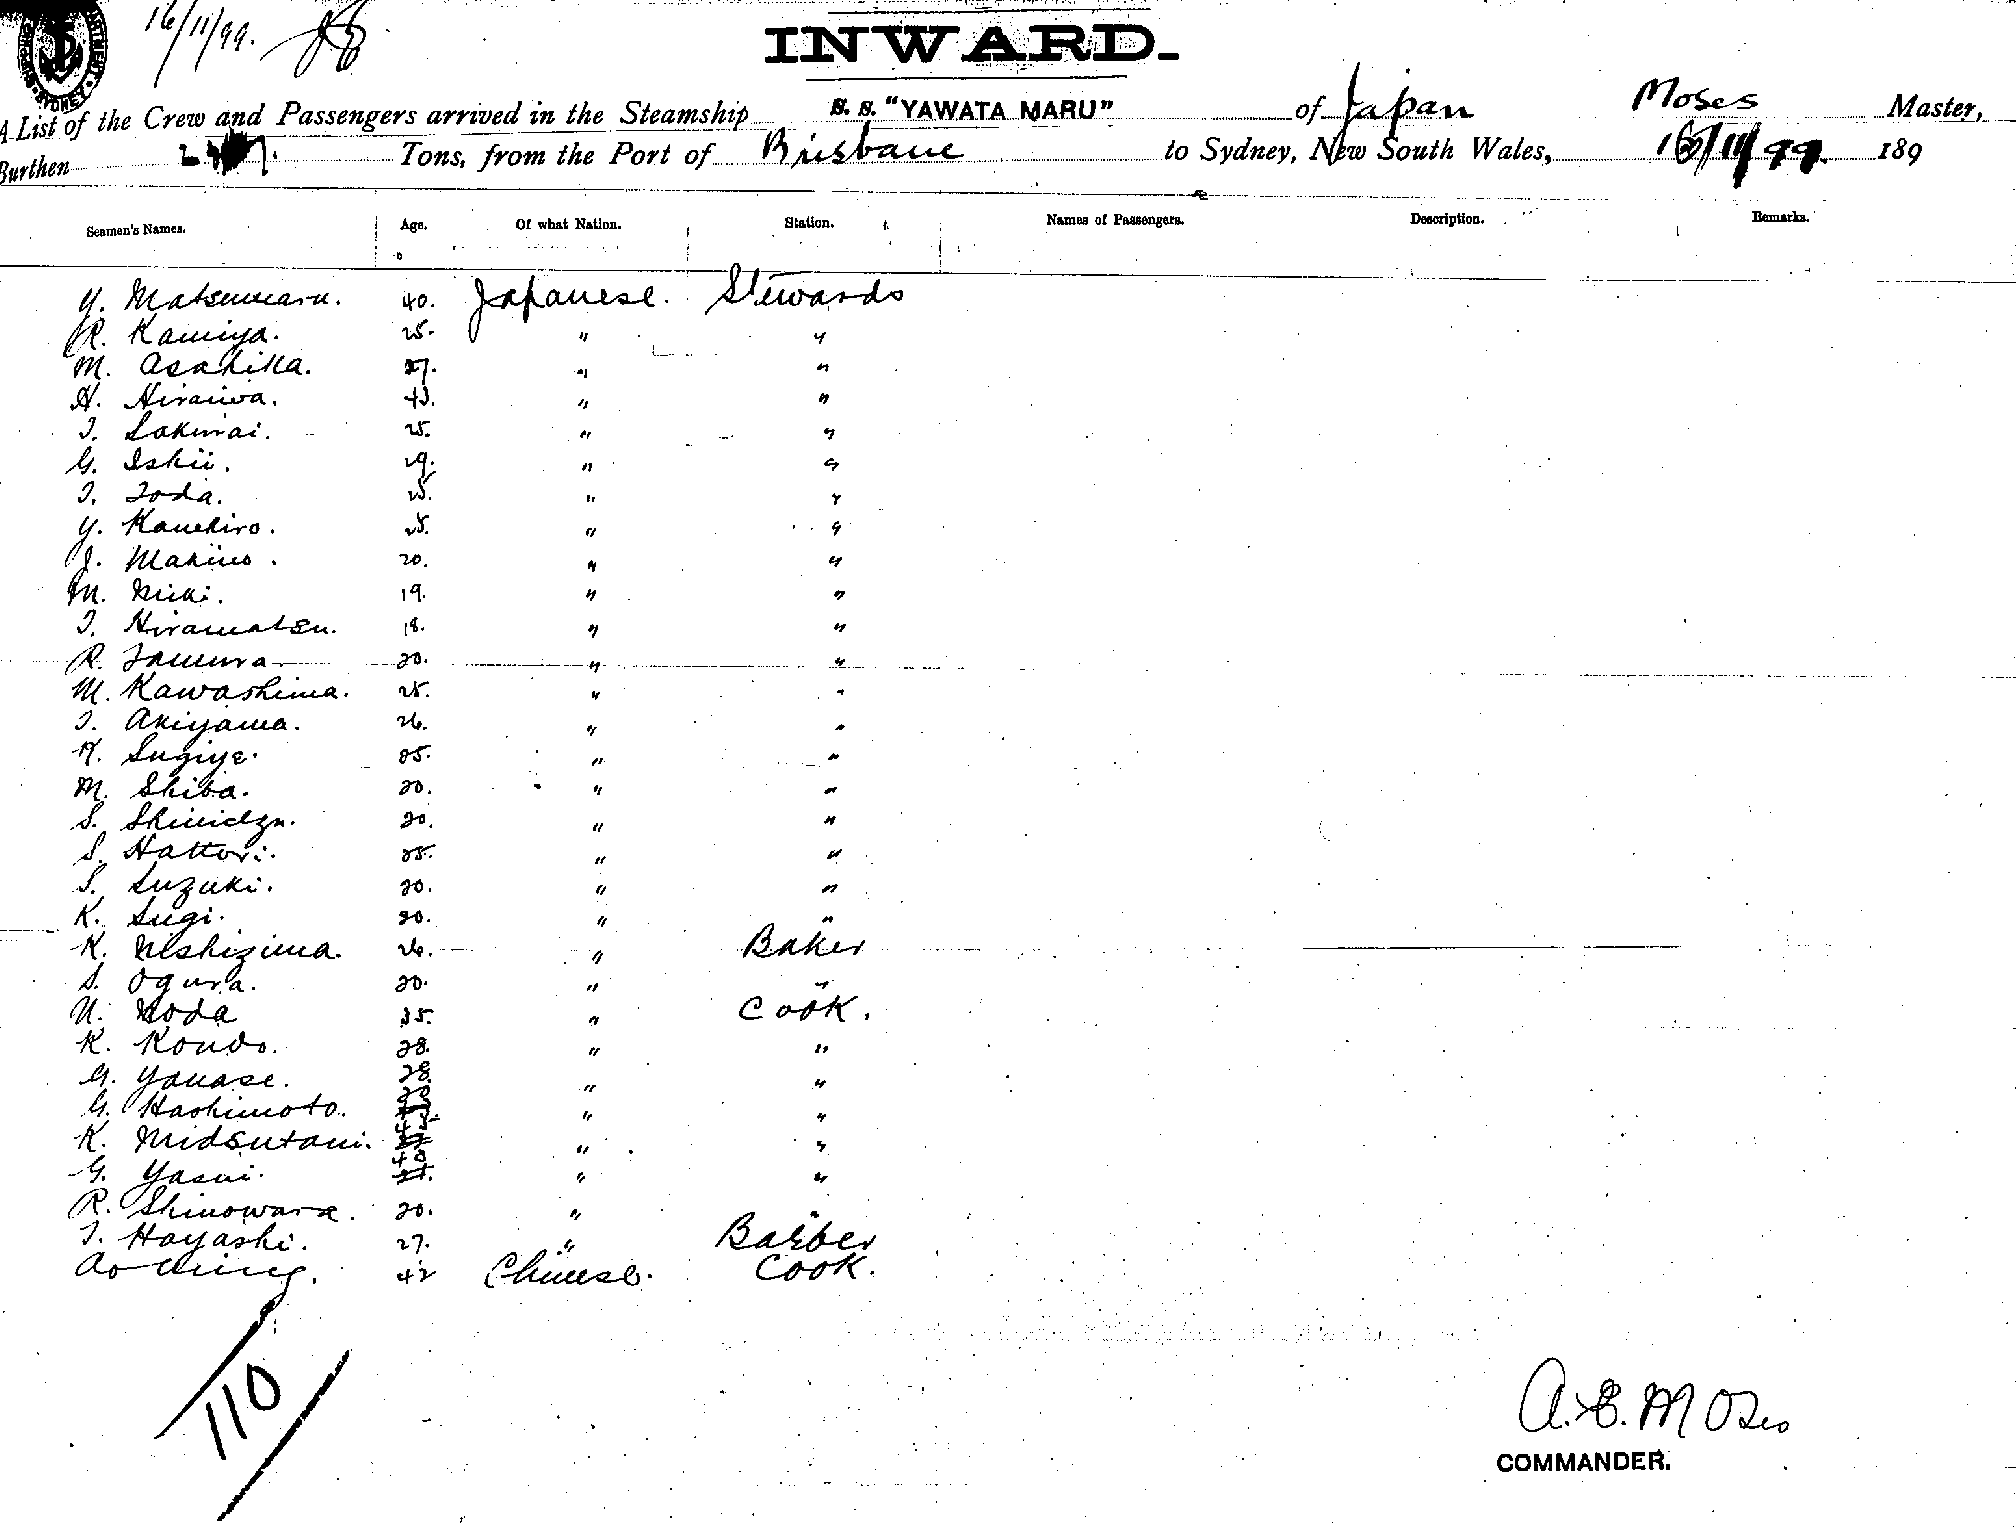 16/11/99.
INWARD.
A List of the Crew and Passengers arrived in the Steamship S. S. "YAWATA MARU" of Japan Moses Master,
Burthen Tons, from the Port of Brisbane to Sydney, New South Wales, 16/11/99. 189
Seamen's Names. Age. Of what Nation. Station. Names of Passengers. Description. Remarks.
Y. Matsumaru. 40. Japanese. Stewards
R. Kamiya. 25. " "
M. Asahika. 27. " "
H. Hiraiwa. 43. " "
T. Sakurai. 25. " "
G. Ishii. 29. " "
T. Toda. 25. " "
Y. Kanehiro. 25. " "
J. Makino. 20. " "
M. Miki. 19. " "
T. Hiramatsu. 18. " "
R. Tamura 20. " "
M. Kawashima. 25. " "
T. Akiyama. 26. " "
K. Sugiye. 25. " "
M. Shiba. 20. " "
S. Shimidzu. 20. " "
S. Hattori. 25. " "
S. Suzuki. 20. " "
K. Sugi. 20. " "
K. Nishizima. 26. " Baker
S. Ogura. 20. " "
U. Noda 35. " Cook.
K. Kondo. 28. " "
G. Yanase. 28. " "
G. Hashimoto. " "
K. Midsutani. " "
G. Yasui. " "
R. Shinowara. 20. " "
T. Hayashi. 27. " Barber
42 Chinese. Cook.
110
A. E. Moses
COMMANDER.